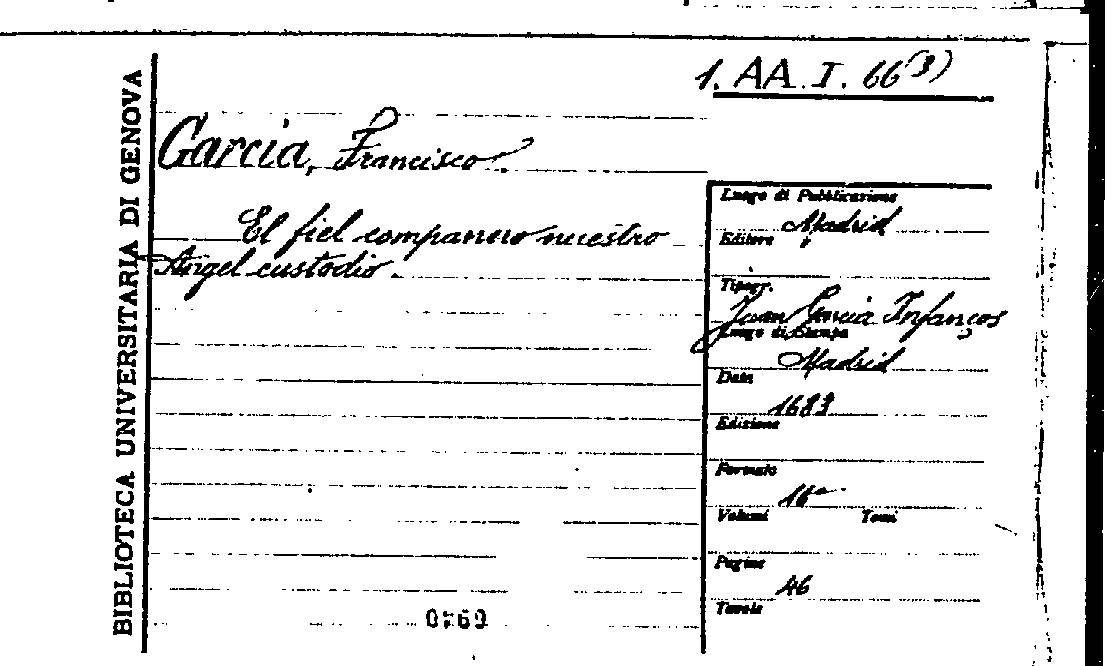 BIBLIOTECA UNIVERSITARIA DI GENOVA
1. AA. I. 66(3)
Garcia, Francisco.
El fiel companero nuestro
Angel custodio.
Luogo di Pubblicazione
Madrid
Editore
Tipogr.
Juan Garcia Infanços
Luogo di Stampa
Madrid
Data
1683
Edizione
Formato
16°
Volumi Tomi
Pagine
46
Tavole